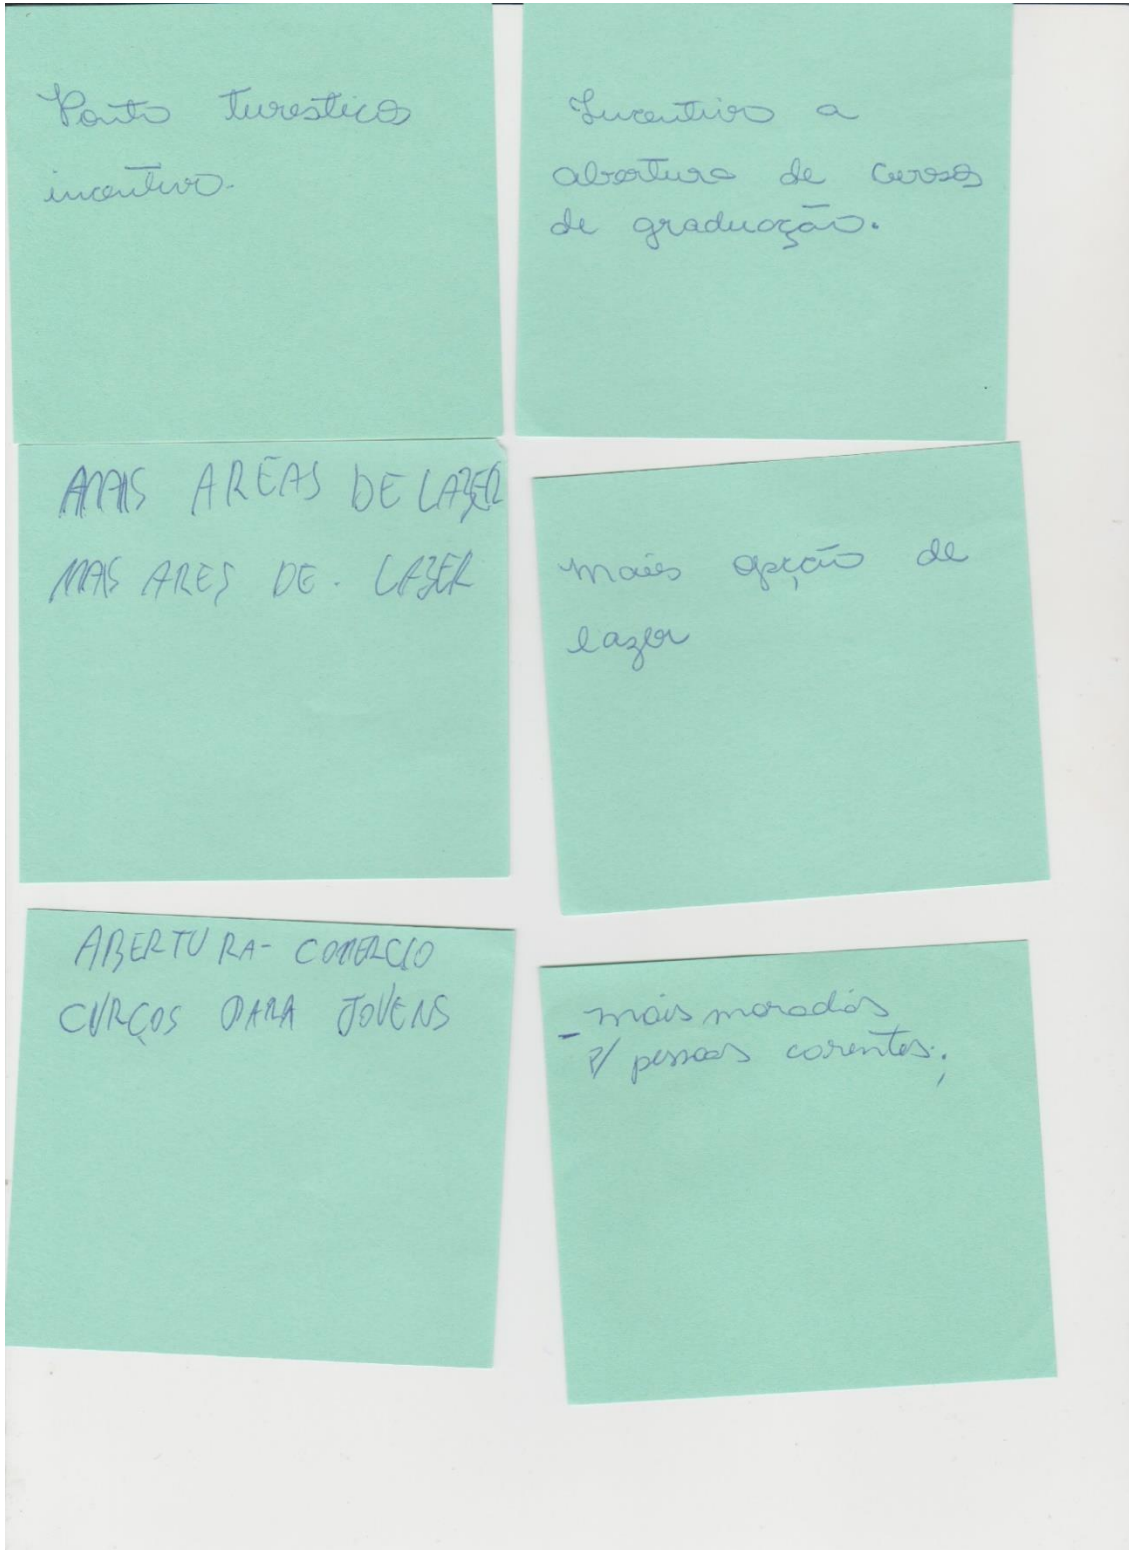 Ponto turesticos
incentivo.
Incentivo a
abertura de cursos
de graduação.
MAIS AREAS DE LAZER
MAS ARES DE. LAZER
mais opção de
lazer
ABERTURA - COMERCIO
CURÇOS PARA JOVENS
- mais moradias
P/ pessoas carentes.;